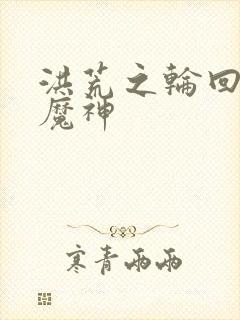 洪荒之輪回
魔神
寒青雨雨